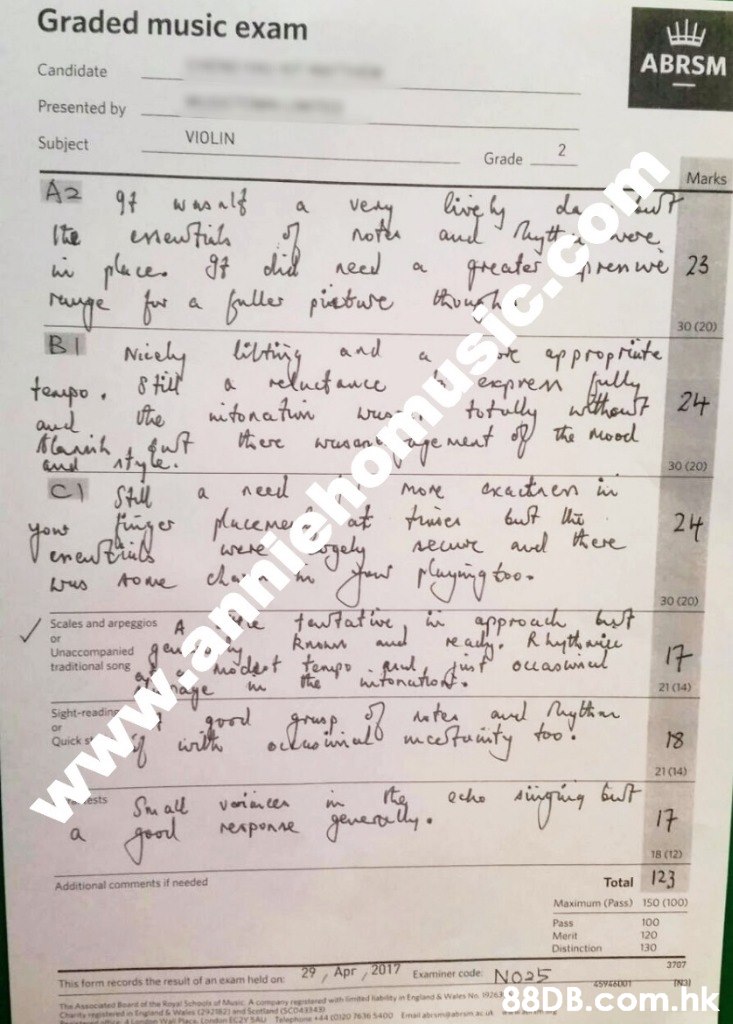 Graded music exam
ABRSM
Candidate
Presented by
Subject VIOLIN Grade 2
Marks
A2 It wasn't a very lively but
the essentials of notes and rhythm were
in place. It did need a greater 23
range for a fuller picture though.
30 (20)
B1 Nicely lilting and a appropriate
tempo. Still a reluctance to express fully
and the intonation totally without 24
blemish but there was of the mood
and style.
30 (20)
C1 Still a need more exactness in
your finger placement at times but the 24
essentials were largely secure and there
was some in your playing too.
30 (20)
Scales and arpeggios A tentative in approach but
or
Unaccompanied known and ready. Rhythmic
traditional song modest tempo and just occasional 17
in the intonation.
21 (14)
Sight-reading good grasp of notes and rhythm
or
Quick with occasional uncertainty too. 18
21 (14)
Small variances in the echo singing but
a good response generally. 17
18 (12)
Additional comments if needed
Total 123
Maximum (Pass) 150 (100)
Pass 100
Merit 120
Distinction 130
3707
This form records the result of an exam held on: 29, Apr, 2017 Examiner code: NO25
(N3)
The Associated Board of the Royal Schools of Music. A company registered with limited liability in England & Wales No.
Charity registered in England & Wales (292182) and Scotland
www.anniehomusic.com
88DB.com.hk